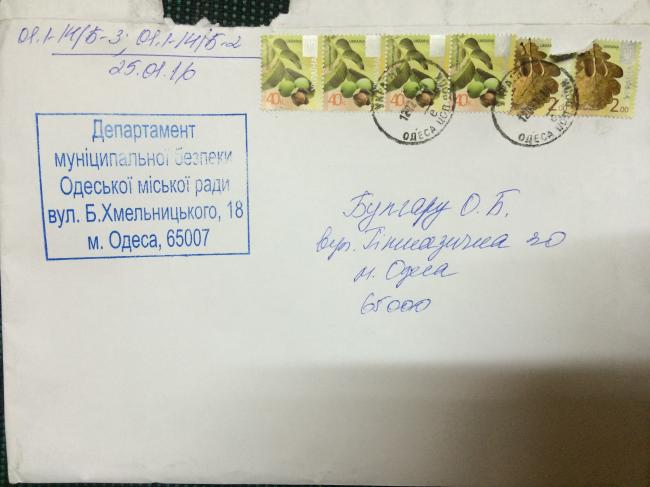 01.1-14/Б-3; 01.1-14/Б-2
25.01.16
40к 40к 40к 40к 2.00 2.00
ОДЕСА ЦОП ОДЕСА ЦОП
Департамент
муніципальної безпеки
Одеської міської ради
вул. Б.Хмельницького, 18
м. Одеса, 65007
Булгару О.Б.
вул. Гімназична 20
м. Одеса
65000